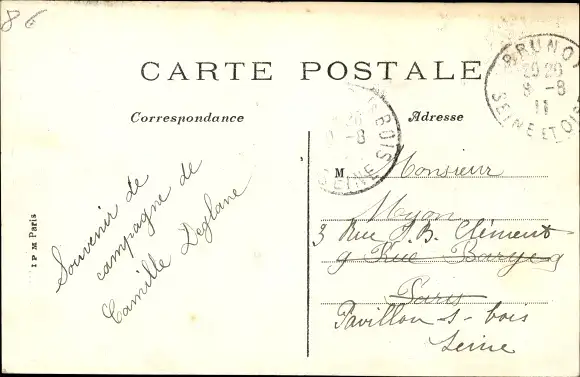 86
CARTE POSTALE
Correspondance
Adresse
BRUNOY
20 20
8 -8
11
SEINE ET OISE
20
-8
BOIS
SEINE
I P M Paris
Souvenir de
campagne de
Camille Deglane
M. Monsieur
Moyon
3 Rue J. B. Clément
9 Rue Barye 9
Paris
Pavillon-s-bois
Seine